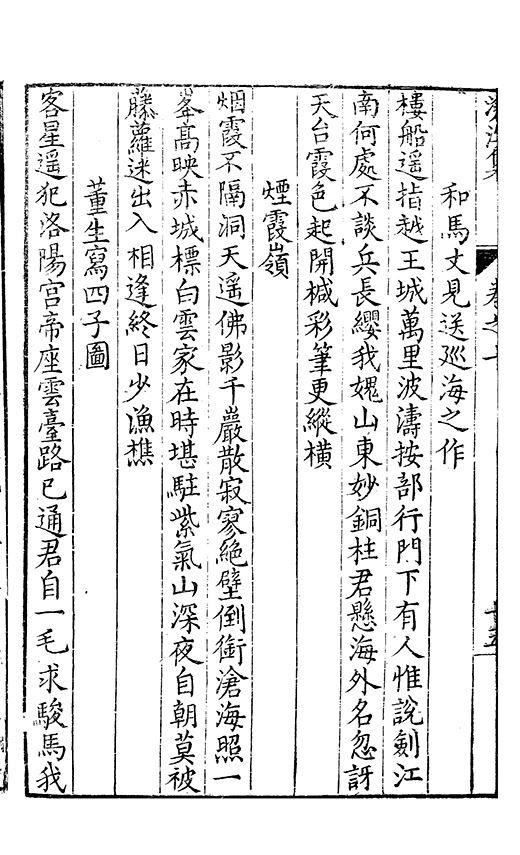 和馬丈見送巡海之作
樓船遥指越王城萬里波濤按部行門下有人惟說劍江
南何處不談兵長纓我媿山東妙銅柱君懸海外名忽訝
天台霞色起開椷彩筆更縱橫
煙霞嶺
烟霞不隔洞天遥佛影千巖散寂寥絶壁倒銜滄海照一
峯髙映赤城標白雲家在時堪駐紫氣山深夜自朝莫被
藤蘿迷出入相逢終日少漁樵
董生寫四子圖
客星遥犯洛陽宫帝座雲臺路已通君自一毛求駿馬我